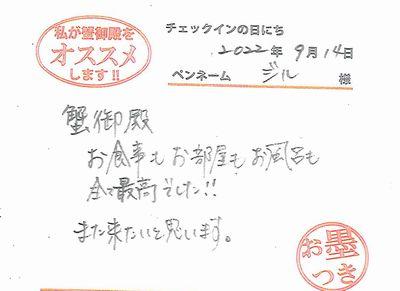 私が蟹御殿を
オススメ
します!!
チェックインの日にち
2022年 9月 14日
ペンネーム ジル 様
蟹御殿
お食事もお部屋もお風呂も
全て最高でした!!
また来たいと思います。
お墨
つき